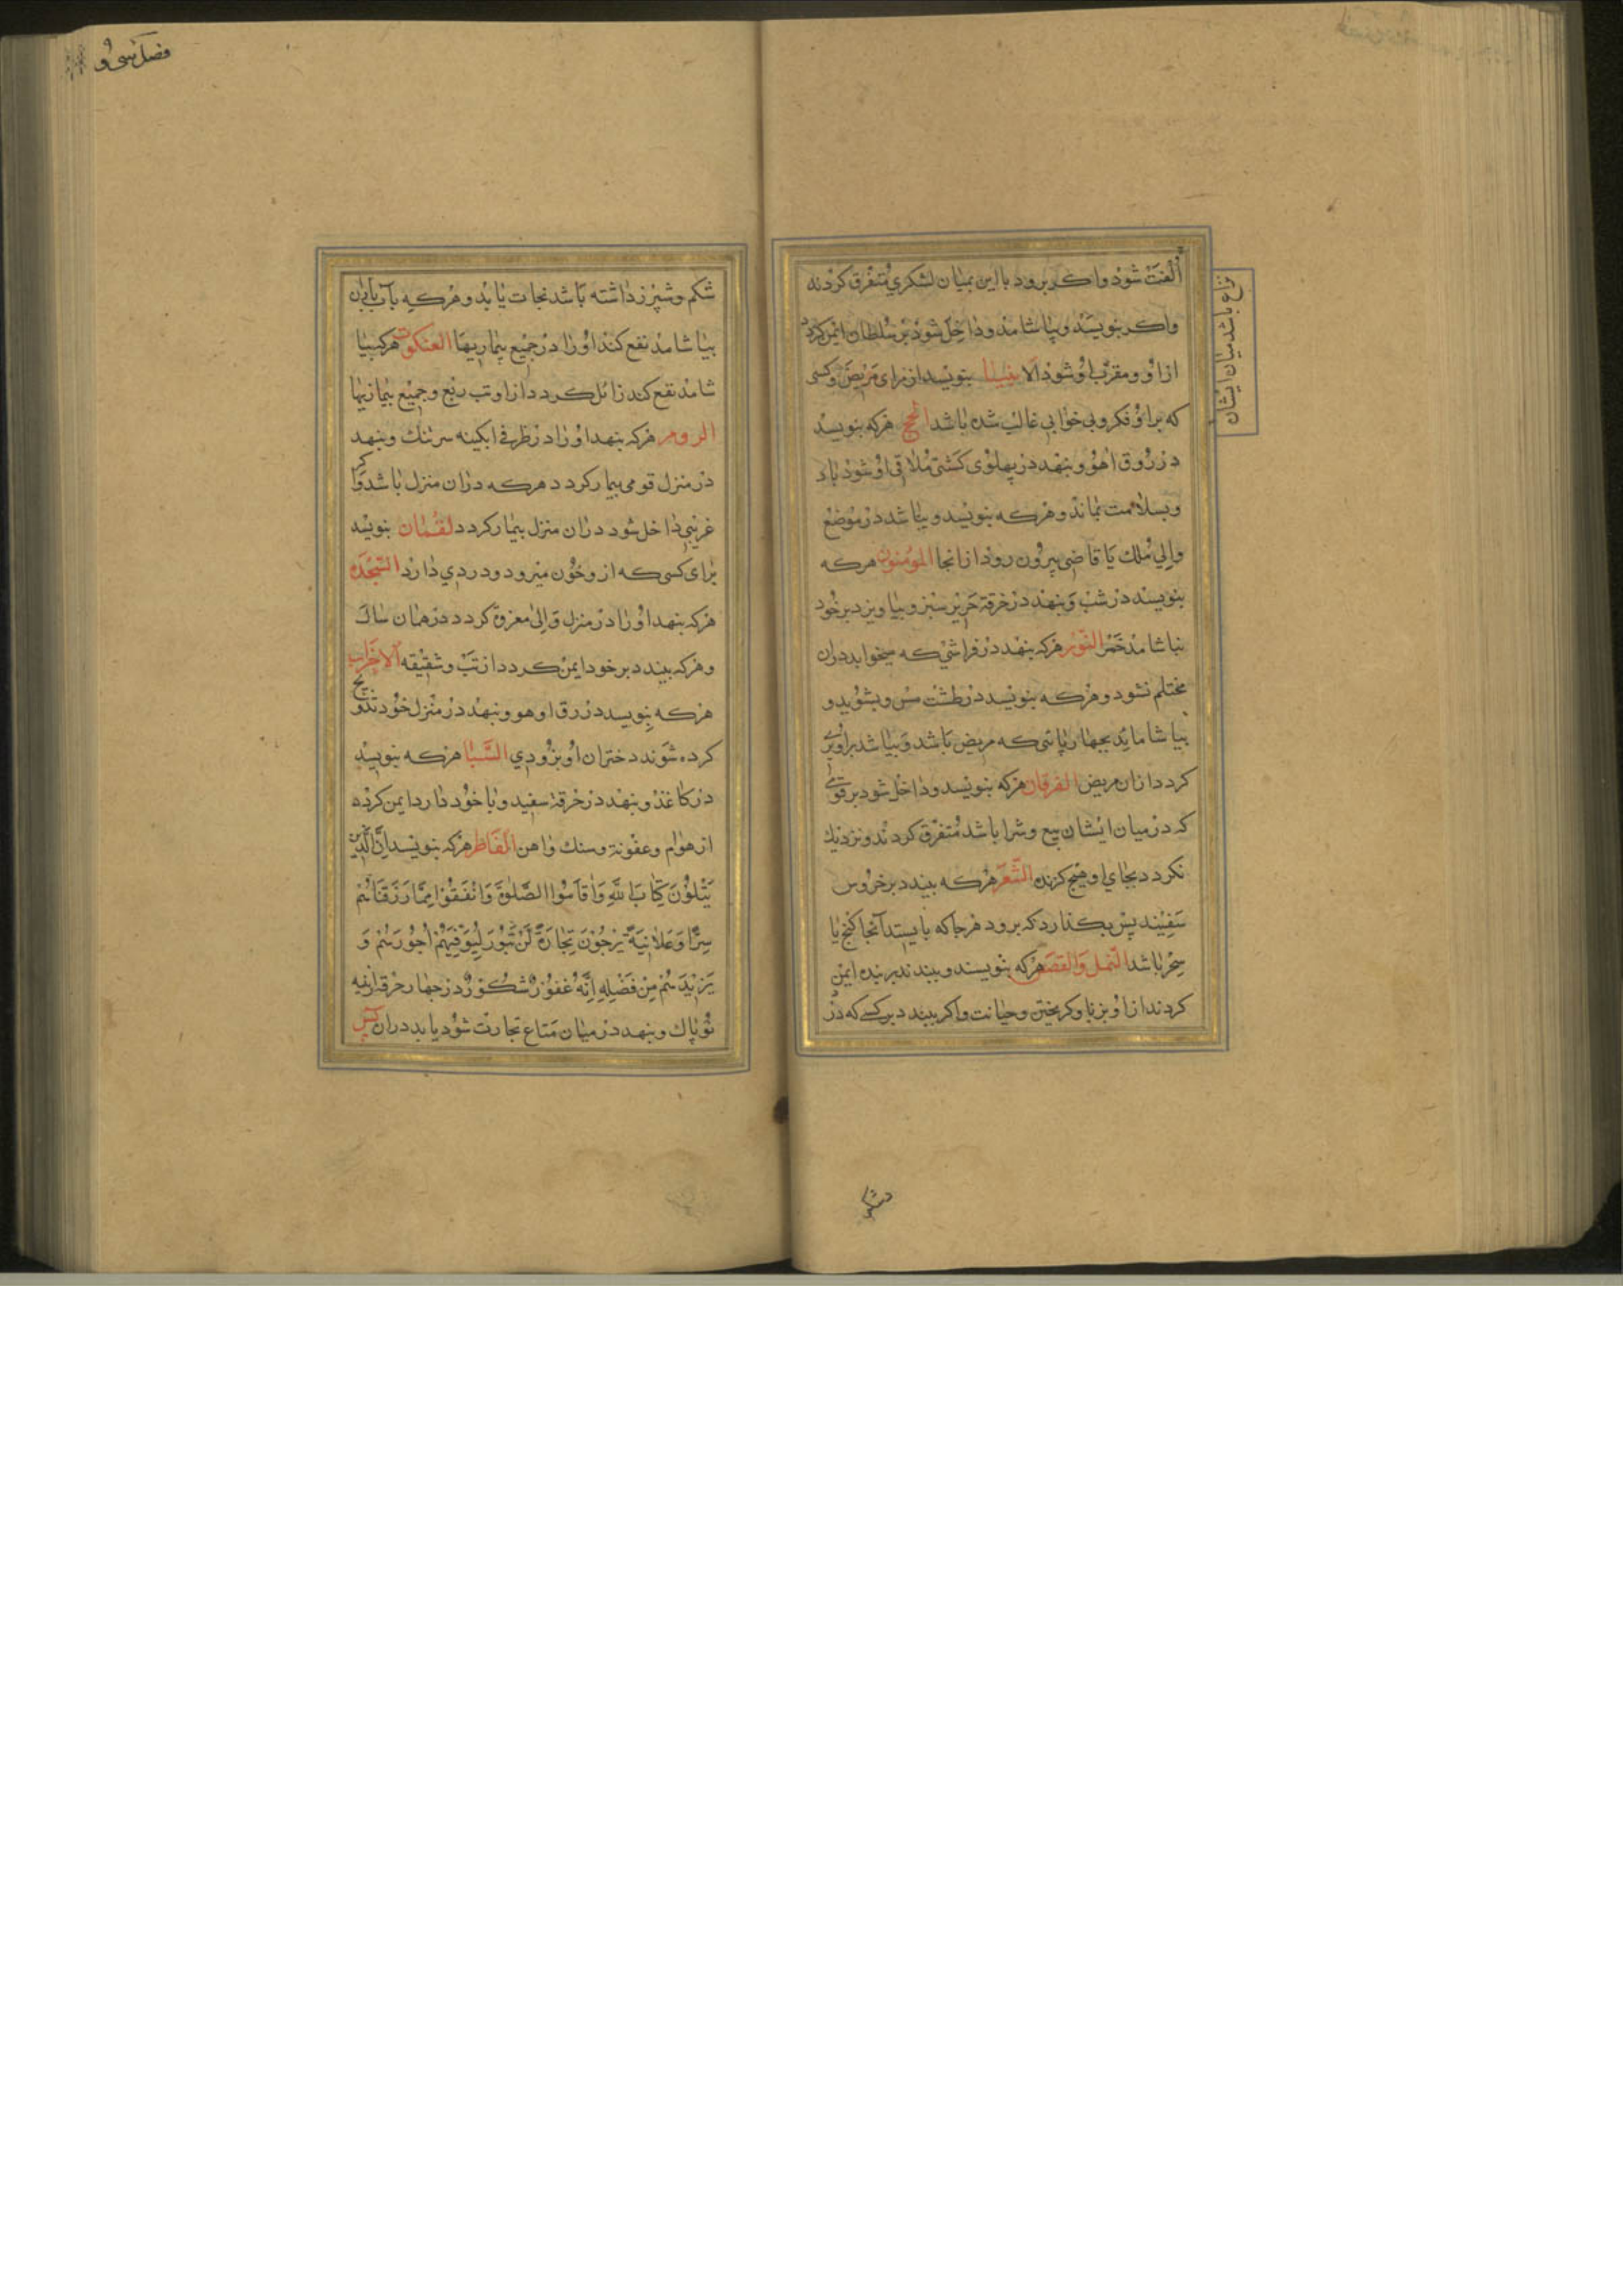 نزاع باشد میان ایشان
ألفت شود واکر برود با این بمیان لشکری متفرق کردند
واکر بنویسد وبیاشامد وداخل شود بر سلطان ایمن کردد
از او ومقرب او شود الانبیا بنویسد از برای مریض وکسی
که بر او فکر وبی خوابی غالب شده باشد الحج هرکه بنویسد
در رق اهو وبنهد در پهلوی کشتی ملاقی او شود باد
وبسلامت بماند وهرکه بنویسد وبپاشد در موضع
والی ملک یا قاضی بیرون رود از انجا المؤمنون هرکه
بنویسد در شب وبنهد در خرقه حریر سبز وبیاویزد بر خود
نیاشامد خمر النور هرکه بنهد در فراشی که میخوابد دران
محتلم نشود وهرکه بنویسد در طشت مس وبشوید و
بیاشاماند بچهارپایی که مریض باشد وبپاشد بر او بری
کردد ازان مریض الفرقان هرکه بنویسد وداخل شود بر قومی
که در میان ایشان بیع وشرا باشد متفرق کردند ونزدیک
نکردد بجای او هیچ کزنده الشعرا هرکه ببندد بر خروس
سفیند پس بکذارد که برود هرجا که بایستد آنجا کنج یا
سحر باشد النمل والقصص هرکه بنویسند وببندند بر بنده ایمن
کردند از او بزنا وکریختن وخیانت واکر ببندد بر کسی که درد
دشکم
فصل سی و
شکم وسپرز داشته باشد نجات یابد وهرکه بآب باران
بیاشامد نفع کند او را در جمیع بیماریها العنکبوت هرکه بیا
شامد نفع کند زائل کردد از او تب ربع وجمیع بیماریها
الروم هرکه بنهد او را در ظرفی ابکینه سر تنک وبنهد
در منزل قومی بیمار کردد هرکه دران منزل باشد واکر
غریبی داخل شود دران منزل بیمار کردد لقمان بنویسد
برای کسی که از و خون میرود ودردی دارد السجدة
هرکه بنهد او را در منزل والی معزول کردد در همان سال
وهرکه ببندد بر خود ایمن کردد از تب وشقیقه الاحزاب
هرکه بنویسد در رق اهو وبنهد در منزل خود تزویج
کرده شوند دختران او بزودی السبا هرکه بنویسد
در کاغذ وبنهد در خرقه سفید وبا خود دارد ایمن کردد
از هوام وعفونة وسنک واهن الفاطر هرکه بنویسد إن الذین
یتلون کتاب الله واقاموا الصلوة وانفقوا مما رزقناهم
سرا وعلانیة یرجون تجارة لن تبور لیوفیهم اجورهم و
یزیدهم من فضله انه غفور شکور در چهار خرقه از پنبه
نو پاک وبنهد در میان متاع تجارت شود یابد دران یس